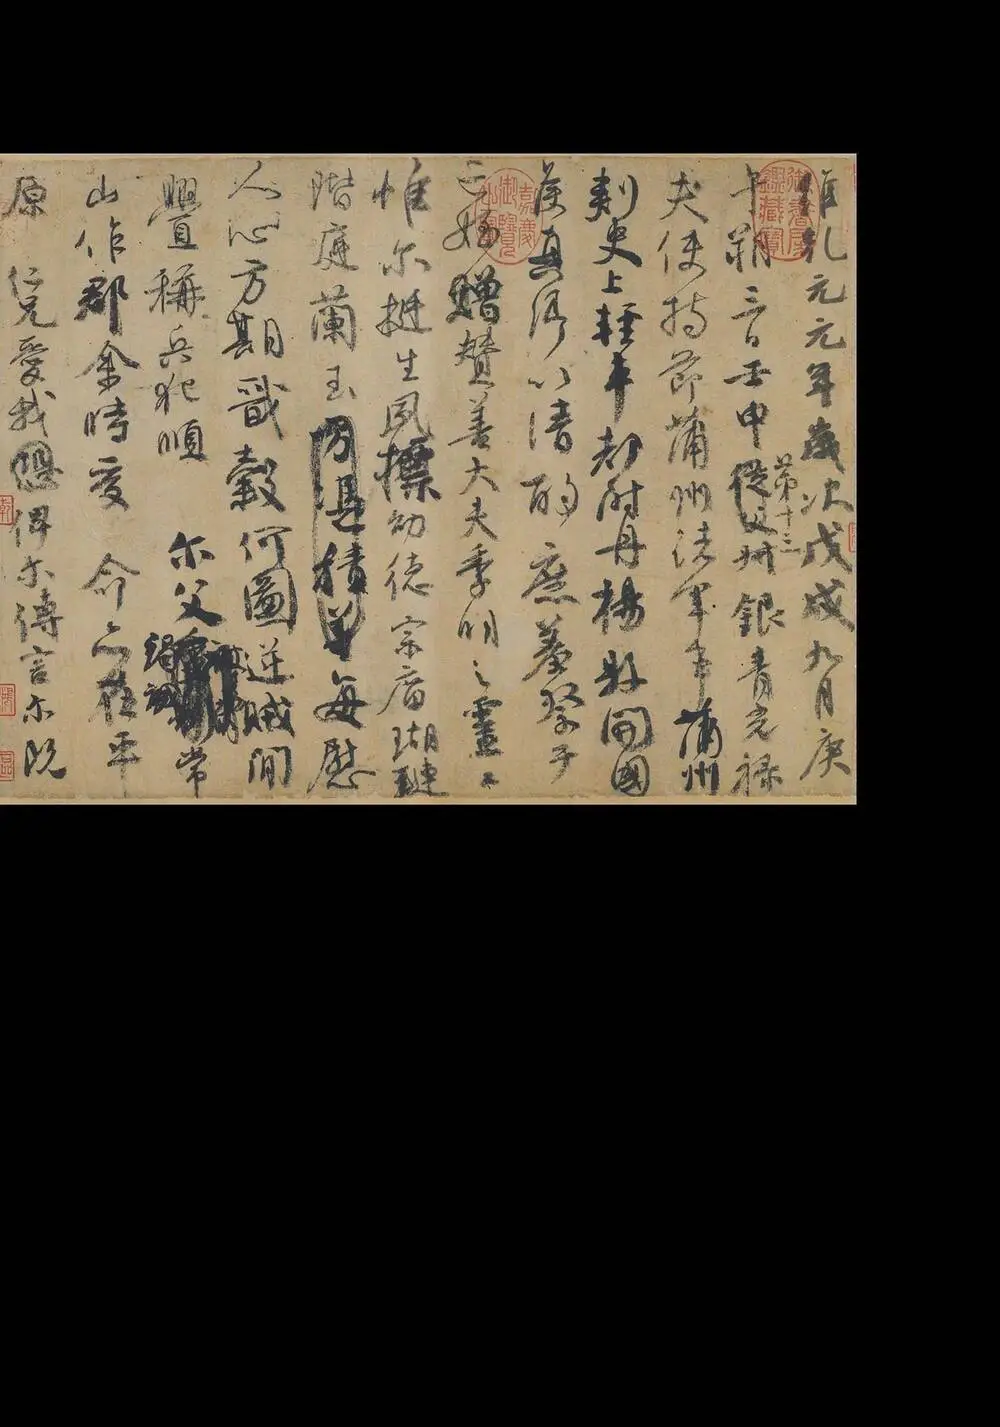 維乾元元年歲次戊戌九月庚
午朔三日壬申第十三從父銀青光祿
夫使持節蒲州諸軍事蒲州
刺史上輕車都尉丹楊縣開國
侯真卿以清酌庶羞祭于
亡姪贈贊善大夫季明之靈曰
惟爾挺生夙標幼德宗廟瑚璉
階庭蘭玉方憑積善每慰
人心方期戩穀何圖逆賊間
釁稱兵犯順爾父竭誠常
山作郡余時受命亦在平
原仁兄愛我恐俾爾傳言爾既